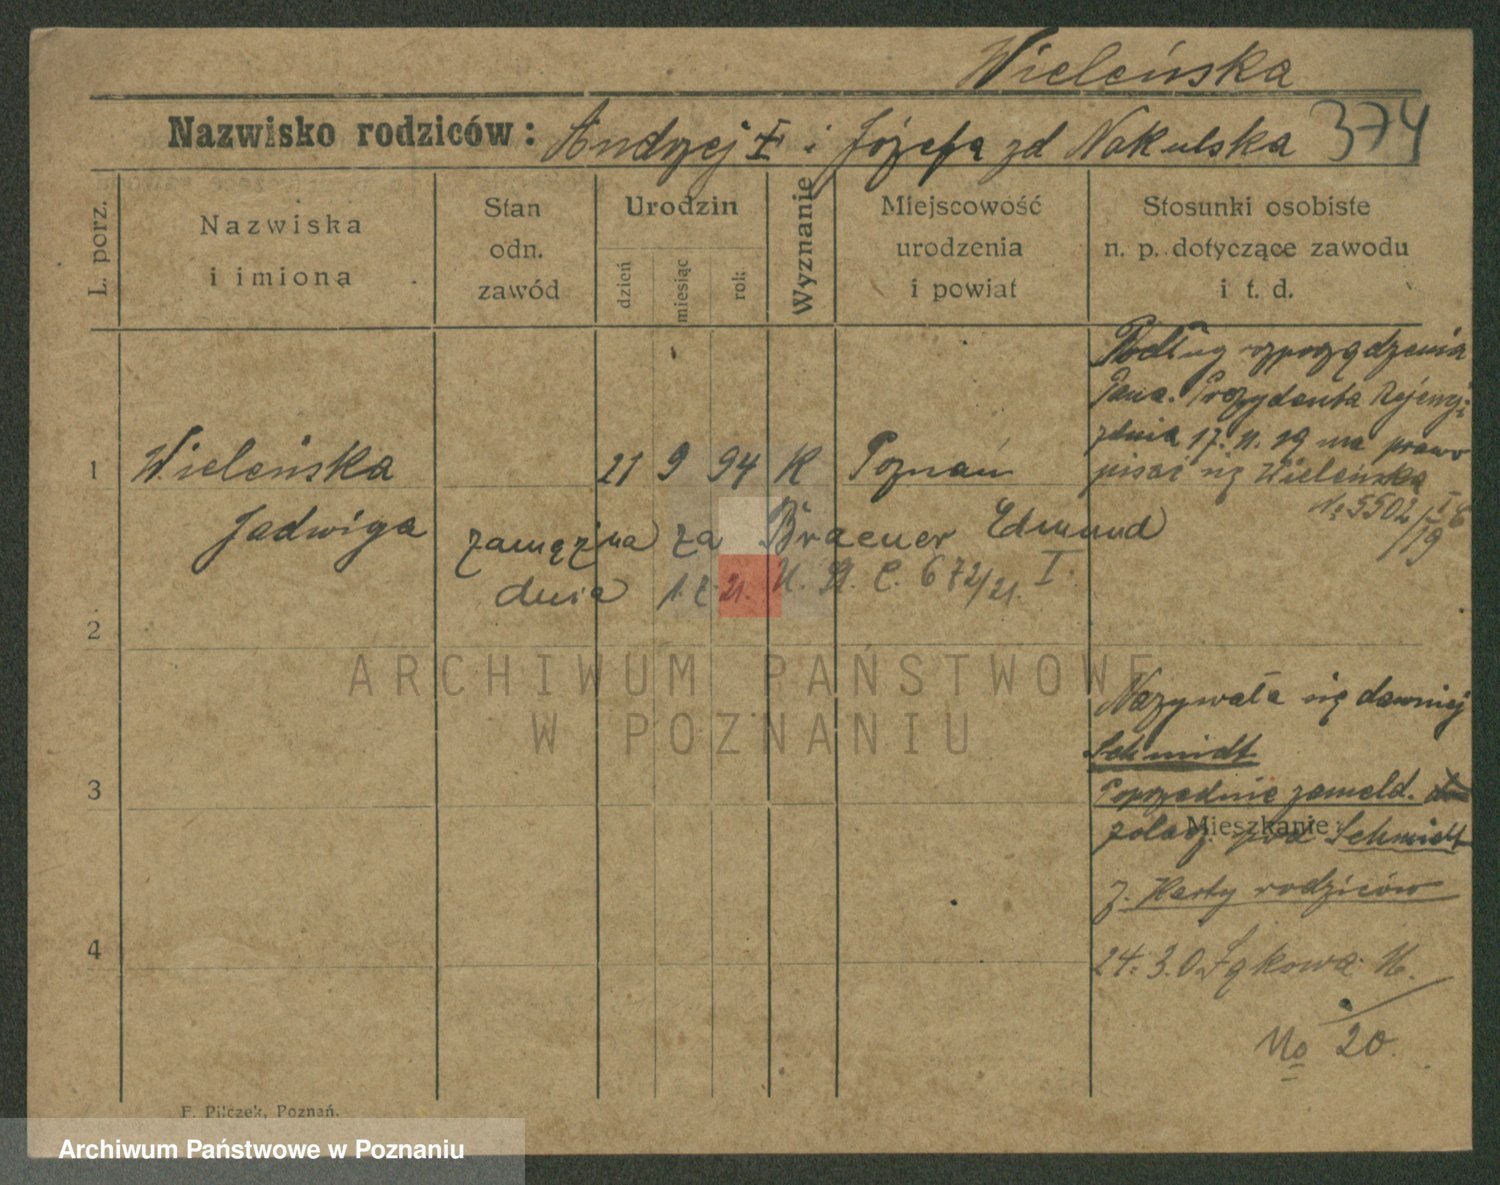 Wieleńska
Nazwisko rodziców: Andrzej i Józefa zd Nakulska 374
L. porz.
Nazwiska
i imiona
Stan
odn.
zawód
Urodzin
dzień
miesiąc
rok
Wyznanie
Miejscowość
urodzenia
i powiat
Stosunki osobiste
n. p. dotyczące zawodu
i t. d.
Podług rozporządzenia
Pana Prezydenta Rejencyi
zdnia 17. 11. 19 ma prawo
pisać się Wieleńska
No 5502
19
1 Wieleńska 21 9 94 K Poznań
Jadwiga
zamężna za Braeuer Edmund
dnia 672/21. I.
2
Nazywała się dawniej
Schmidt
Poprzednie zameld.
Schmidt
Mieszkanie:
z. Karty rodziców
3
4
24. 3. 0 Łąkowa
No 20.
F. Pilczek, Poznań.
ARCHIWUM PAŃSTWOWE
W POZNANIU
Archiwum Państwowe w Poznaniu